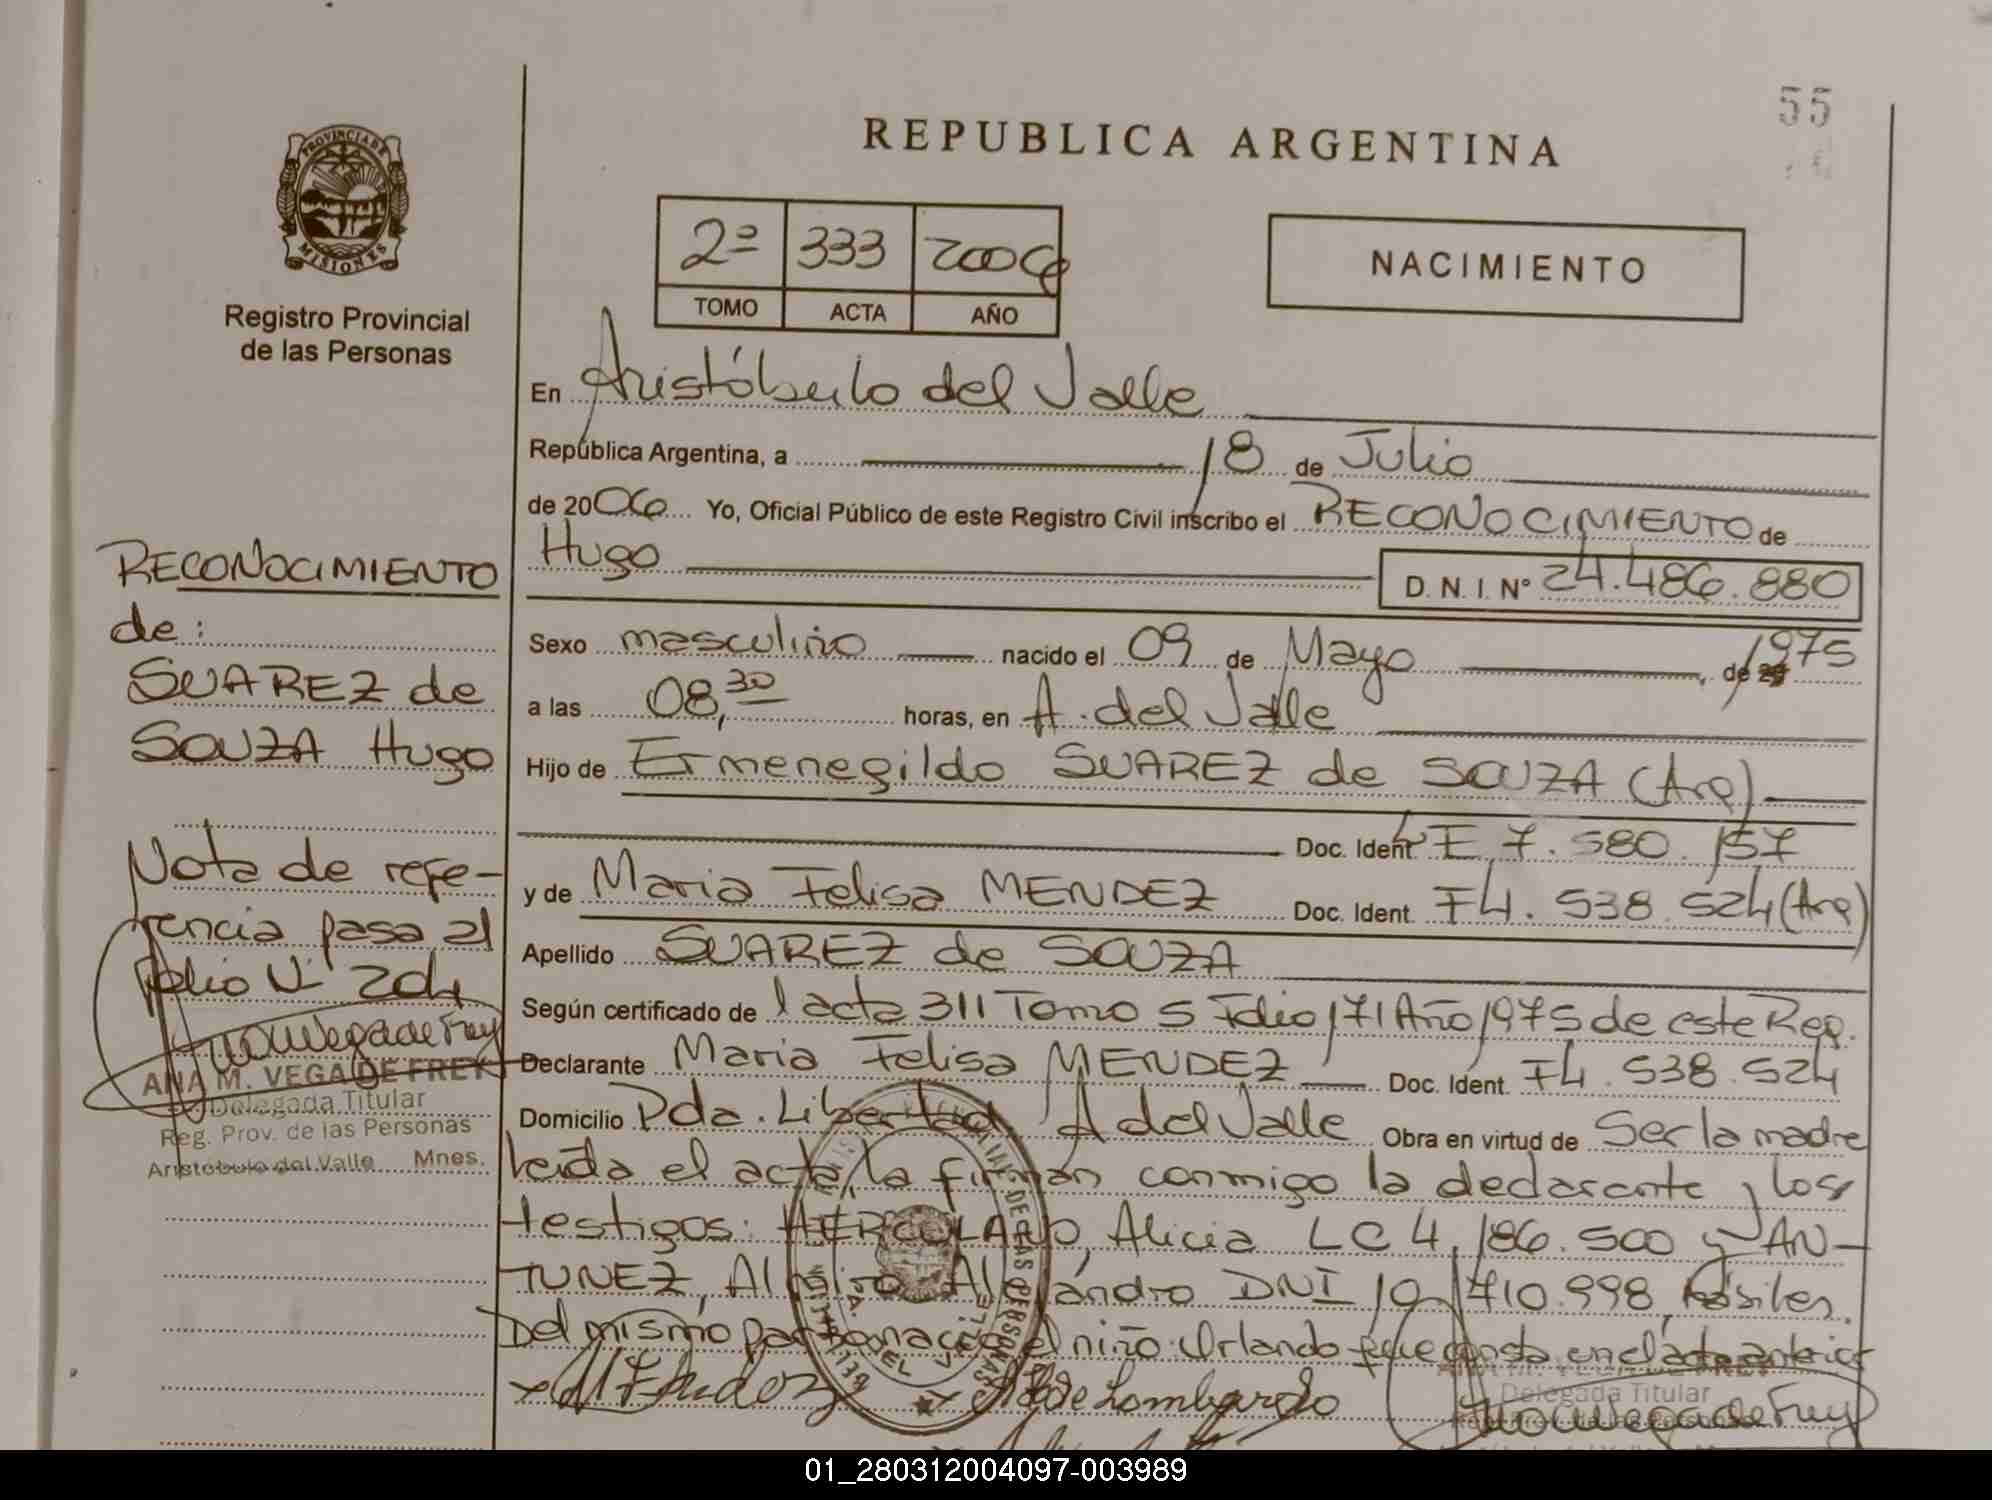 55
REPUBLICA ARGENTINA
PROVINCIA DE
MISIONES
Registro Provincial
de las Personas
2º 333 2006
TOMO ACTA AÑO
NACIMIENTO
En Aristóbulo del Valle
República Argentina, a 18 de Julio
de 2006 Yo, Oficial Público de este Registro Civil inscribo el RECONOCIMIENTO de
Hugo D. N. I. Nº 24.486.880
Sexo masculino nacido el 09 de Mayo de 1975
a las 08,30 horas, en A. del Valle
Hijo de Ermenegildo SUAREZ de SOUZA (Arg)
Doc. Ident. 7.580.157
y de Maria Felisa MENDEZ Doc. Ident. F4.538.524 (Arg)
Apellido SUAREZ de SOUZA
Según certificado de l acta 311 Tomo 5 Folio 171 Año 1975 de este Reg.
Declarante Maria Felisa MENDEZ Doc. Ident. F4.538.524
Domicilio Pda. Libertad A del Valle Obra en virtud de Ser la madre
Leida el acta, la firman conmigo la declarante y los
testigos: HERCOLANO, Alicia LC 4.186.500 y AN-
TUNEZ, Almiro Alejandro DNI 10.710.998
Del mismo parto nacio el niño Orlando que consta en el acta anterior
RECONOCIMIENTO
de:
SUAREZ de
SOUZA Hugo
Nota de refe-
rencia pasa al
folio Nº 204
ANA M. VEGA DE FREY
Delegada Titular
Reg. Prov. de las Personas
Aristóbulo del Valle Mnes.
ANA M. VEGA DE FREY
Delegada Titular
01_280312004097-003989